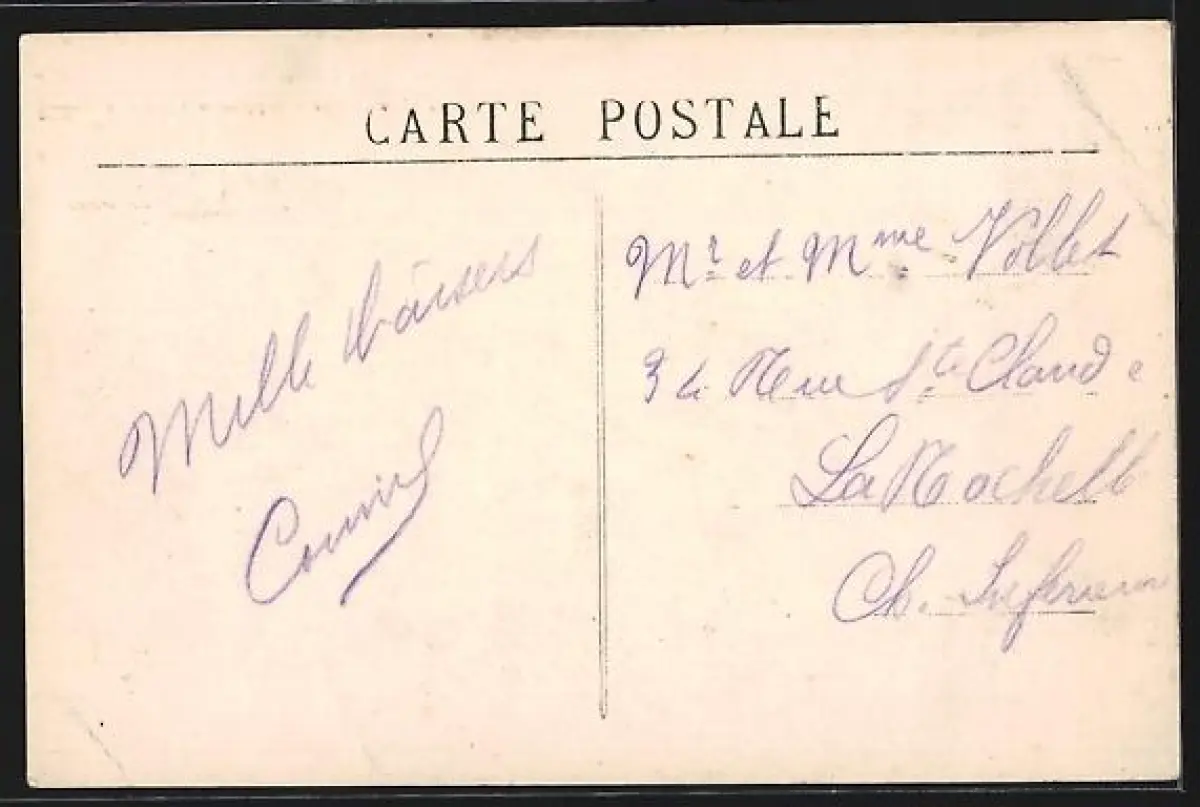 CARTE POSTALE
Mille baisers
Mr et Mme Vollet
Rue Ste Claude
La Rochelle
Ch. Inferieure